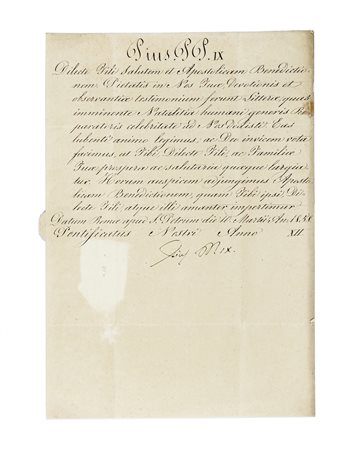 Pius PP. IX
Dilecte Fili salutem et Apostolicam Benedictio-
nem. Pietatis in Nos Tuæ Devotionis et
observantiæ testimonium ferunt Litteræ, quas
imminente Natalitia humani generis Re-
paratoris celebritate ad Nos dedisti. Eas
libenti animo legimus, ac Deo invicem vota
facimus, ut Tibi Dilecte Fili, ac Familiæ
Tuæ prospera ac salutaria quæque largia-
tur. Horum auspicem adjungimus Aposto-
licam Benedictionem, quam Tibi ipsi Di-
lecte Fili atque illi amanter impertimur
Datum Romæ apud S. Petrum die Martii An. 1858
Pontificatus Nostri Anno XII
Pius PP. IX.